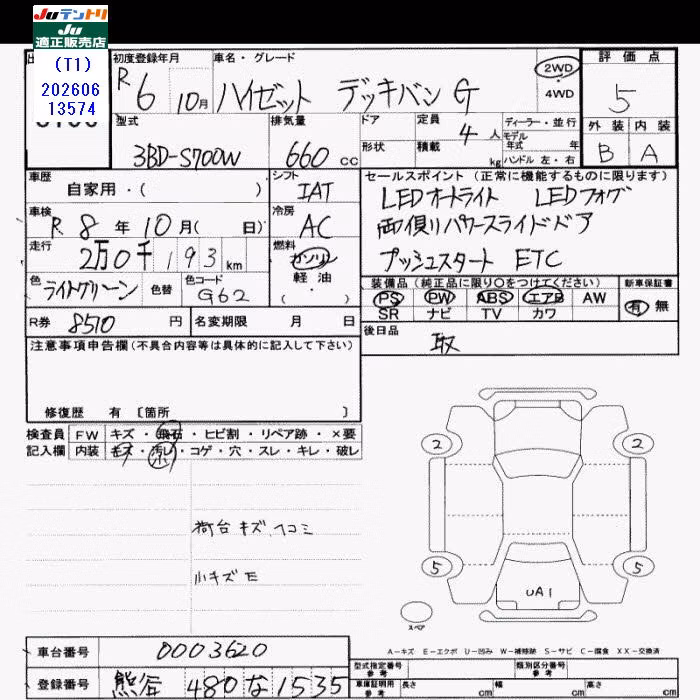 Juテントリ
Ju
適正販売店
(T1)
202606
13574
初度登録年月 R6 10月
車名・グレード ハイゼット デッキバン G
2WD
4WD
評価点 5
外装 B 内装 A
型式 3BD-S700W
排気量 660 cc
ドア
形状
定員 4 人
積載 kg
ディーラー・並行
モデル年式 年
ハンドル 左・右
車歴 自家用・( )
シフト IAT
車検 R 8 年 10 月( 日)
冷房 AC
走行 2万0千193 km
燃料 ガソリン・軽油・( )
色 ライトグリーン 色替
色コード G62
R券 8510 円
名変期限 月 日
セールスポイント(正常に機能するものに限ります)
LEDオートライト LEDフォグ
両側パワースライドドア
プッシュスタート ETC
装備品(純正品に限り○をつけてください)
PS PW ABS エアB AW
SR ナビ TV カワ
新車保証書
有 無
後日品 取
注意事項申告欄(不具合内容等は具体的に記入して下さい)
修復歴 有 〔箇所 〕
検査員 FW キズ・飛石・ヒビ割・リペア跡・×要
記入欄 内装 キズ・汚レ・コゲ・穴・スレ・キレ・破レ
荷台キズ、ヘコミ
小キズE
2 2
5 5
UA1
スペア
A-キズ E-エクボ U-凹み W-補修跡 S-サビ C-腐食 XX-交換済
車台番号 0003620
登録番号 熊谷 480 な 1535
型式指定番号 参考
類別区分番号 参考
車庫証明用 参考 長さ cm 幅 cm 高さ cm